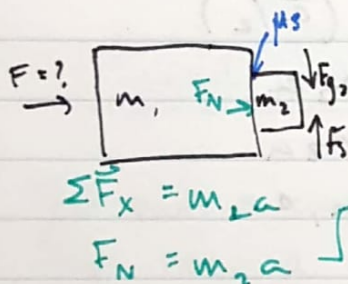 μs
F = ?
m₁
F_N
m₂
F_g₂
F_s
ΣF⃗_x = m₂a
F_N = m₂a